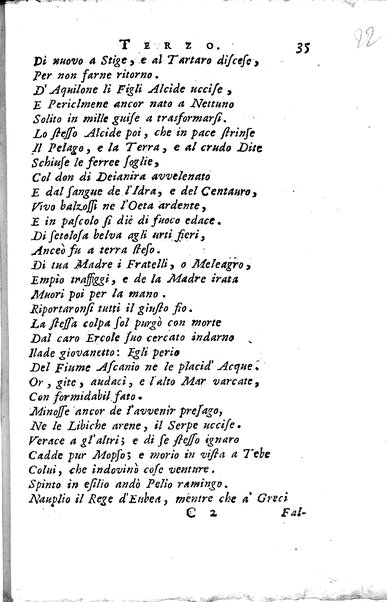 TERZO. 35
92
Di nuovo a Stige, e al Tartaro discese,
Per non farne ritorno.
D' Aquilone li Figli Alcide uccise,
E Periclmene ancor nato a Nettuno
Solito in mille guise a trasformarsi.
Lo stesso Alcide poi, che in pace strinse
Il Pelago, e la Terra, e al crudo Dite
Schiuse le ferree soglie,
Col don di Deianira avvelenato
E dal sangue de l'Idra, e del Centauro,
Vivo balzossi ne l'Oeta ardente,
E in pascolo si diè di fuoco edace.
Di setolosa belva agli urti fieri,
Anceò fu a terra steso.
Di tua Madre i Fratelli, o Meleagro,
Empio traffiggi, e de la Madre irata
Muori poi per la mano.
Riportaronsi tutti il giusto fio.
La stessa colpa sol purgò con morte
Dal caro Ercole suo cercato indarno
Ilade giovanetto: Egli perio
Del Fiume Ascanio ne le placid' Acque.
Or, gite, audaci, e l'alto Mar varcate,
Con formidabil fato.
Minosse ancor de l'avvenir presago,
Ne le Libiche arene, il Serpe uccise.
Verace a gl'altri; e di se stesso ignaro
Cadde pur Mopso; e morìo in vista a Tebe
Colui, che indovinò cose venture.
Spinto in esilio andò Pelio ramingo.
Nauplio il Rege d'Eubea, mentre che a' Greci
C 2 Fal-